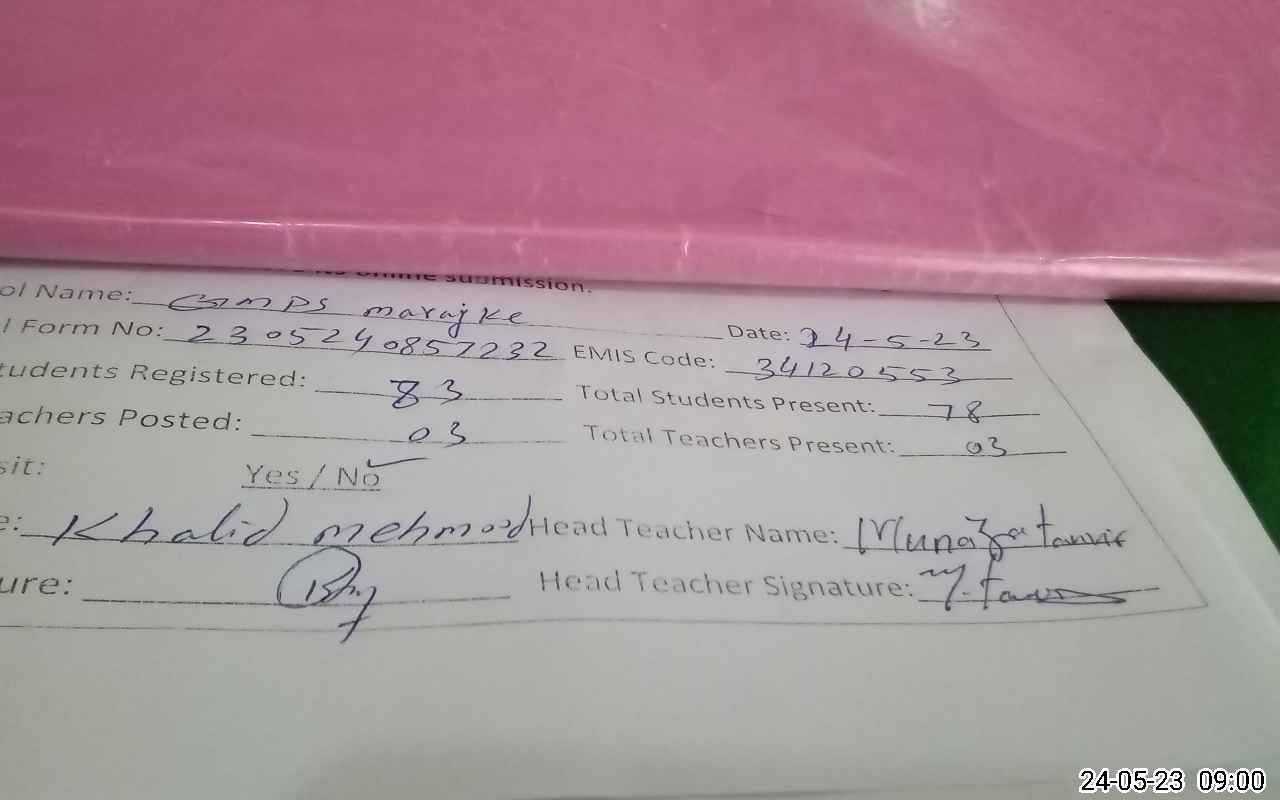 online submission.
ol Name: GMPS marajke
Date: 24-5-23
l Form No: 2305240857232 EMIS Code: 34120553
tudents Registered: 83 Total Students Present: 78
achers Posted: 03 Total Teachers Present: 03
sit: Yes / No
e: Khalid mehmood Head Teacher Name: Munaza tanvir
ure: Head Teacher Signature:
24-05-23 09:00